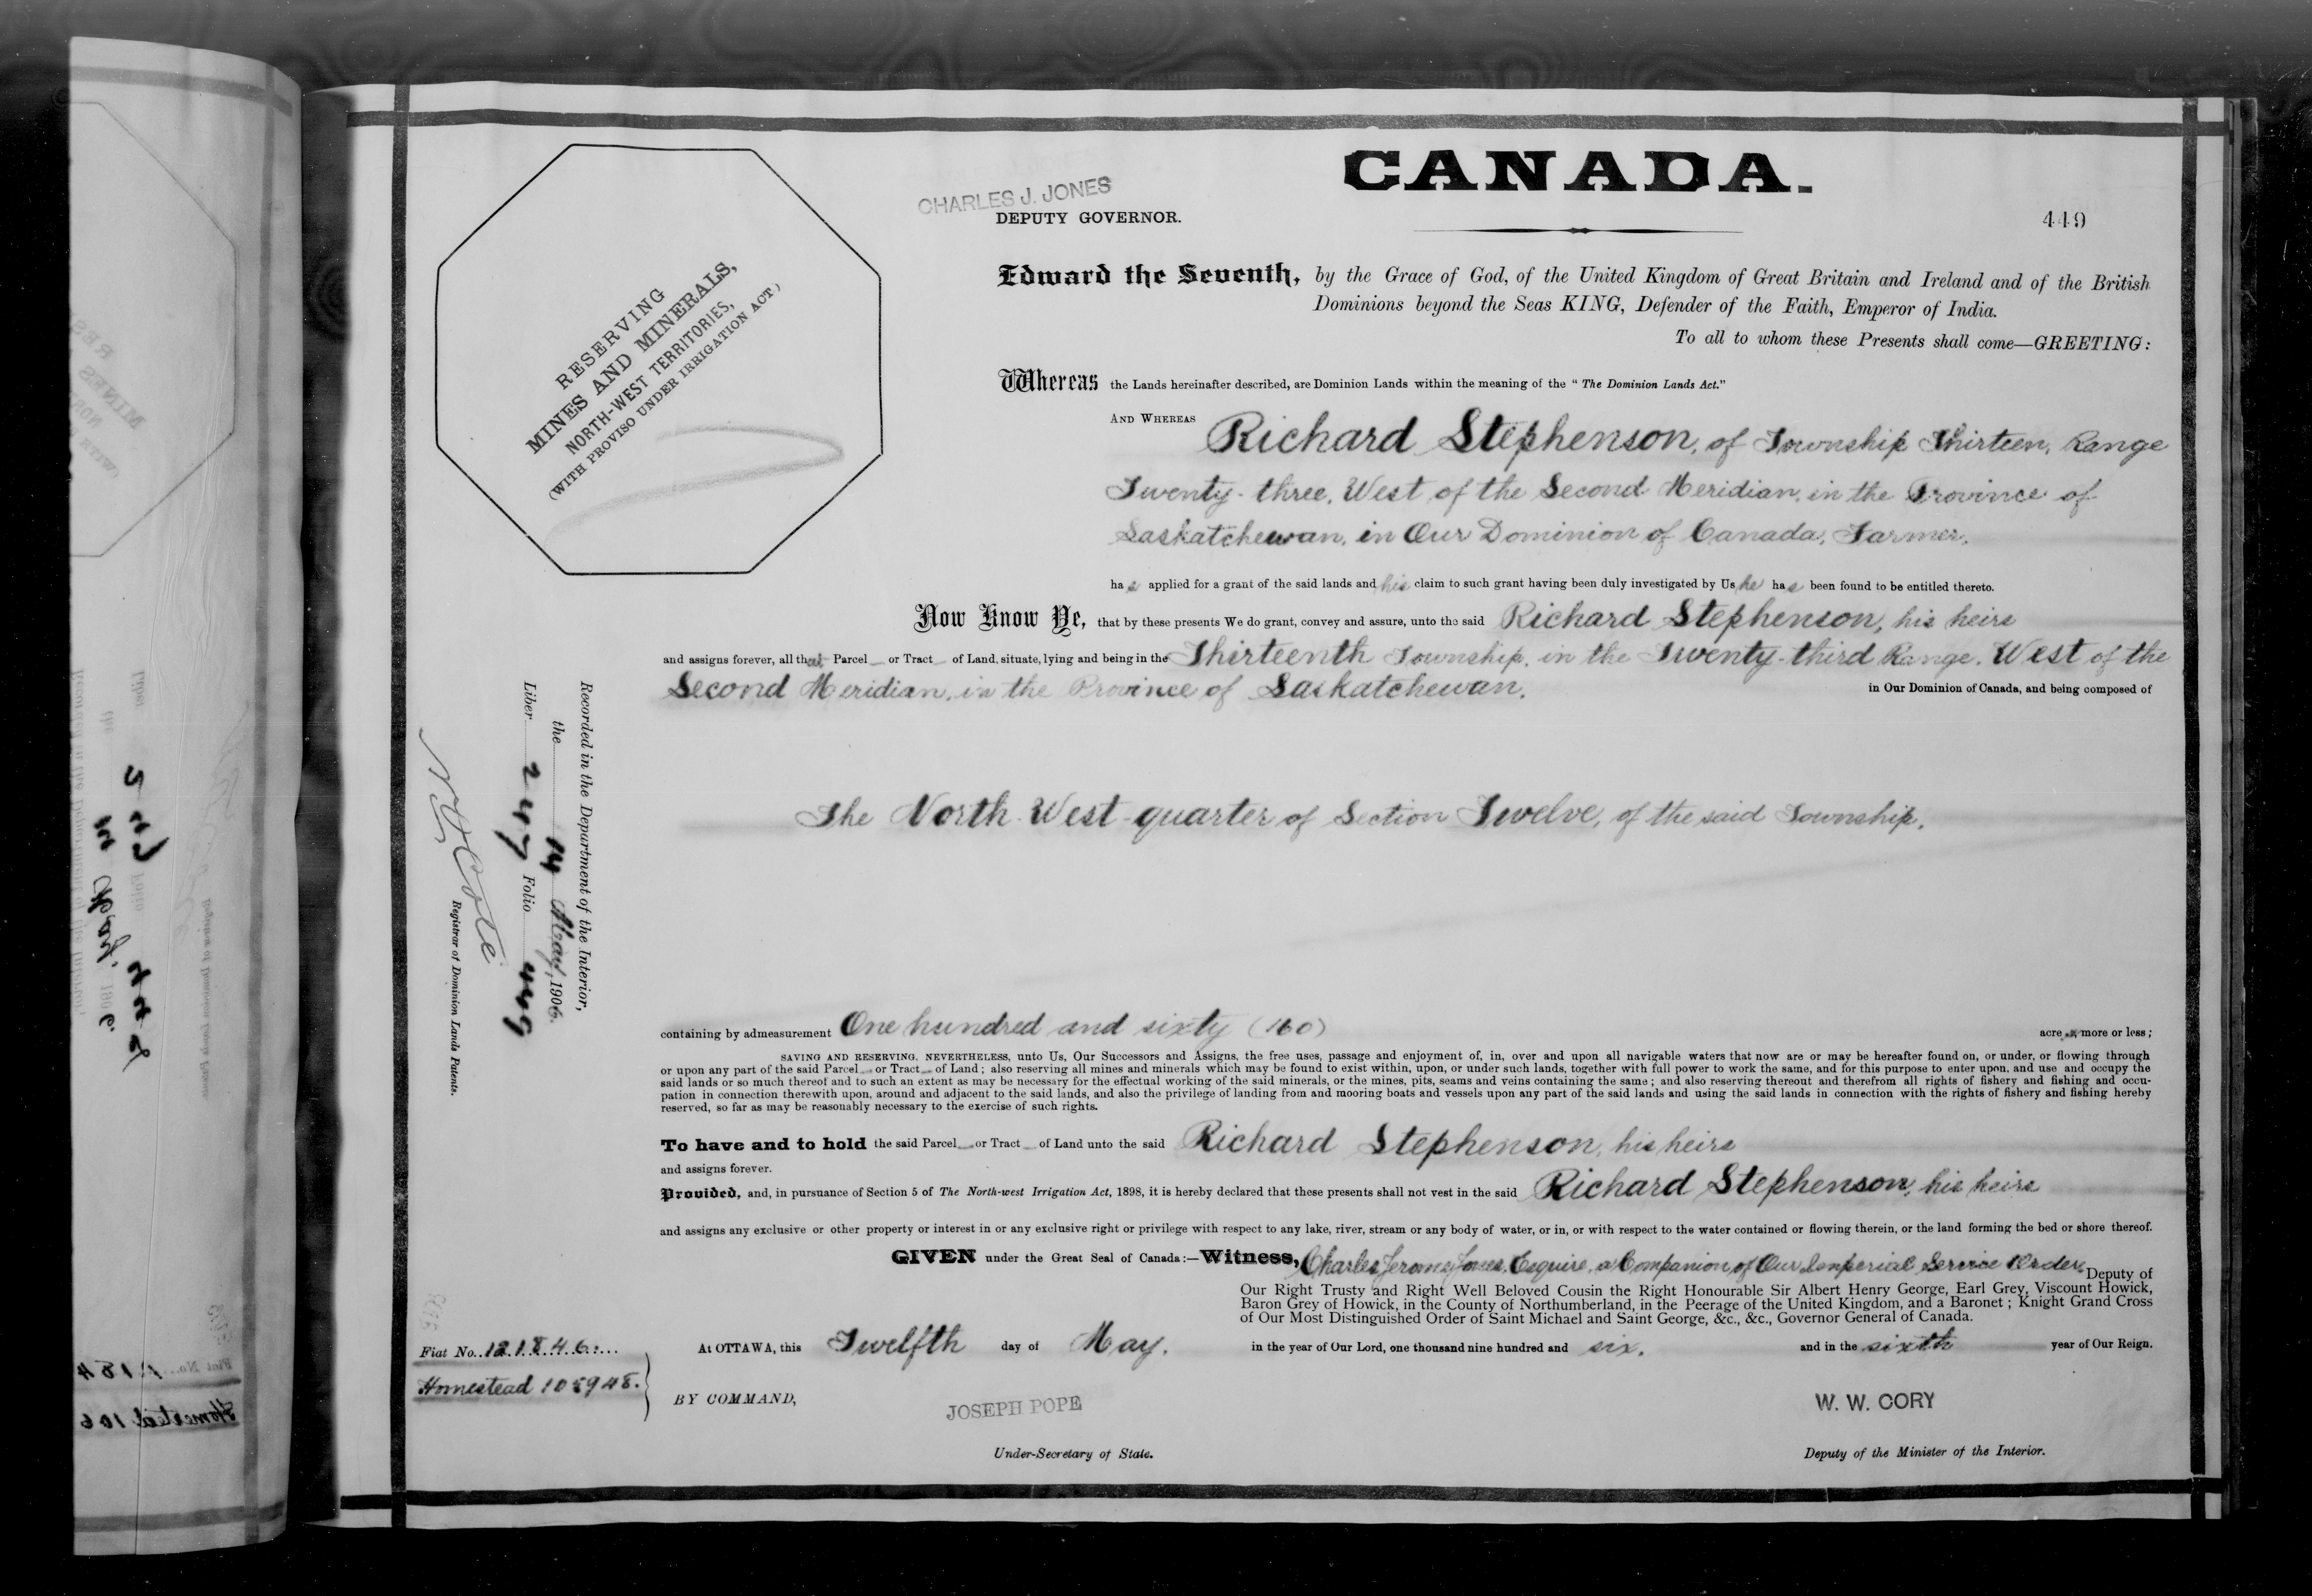 CANADA.
CHARLES J. JONES
DEPUTY GOVERNOR.
449
RESERVING
MINES AND MINERALS,
NORTH-WEST TERRITORIES,
(WITH PROVISO UNDER IRRIGATION ACT.)
Edward the Seventh, by the Grace of God, of the United Kingdom of Great Britain and Ireland and of the British
Dominions beyond the Seas KING, Defender of the Faith, Emperor of India.
To all to whom these Presents shall come—GREETING:
Whereas the Lands hereinafter described, are Dominion Lands within the meaning of the "The Dominion Lands Act."
AND WHEREAS Richard Stephenson, of Township Thirteen, Range
Twenty-three, West of the Second Meridian, in the Province of
Saskatchewan, in Our Dominion of Canada, Farmer,
has applied for a grant of the said lands and his claim to such grant having been duly investigated by Us he has been found to be entitled thereto.
Now Know Ye, that by these presents We do grant, convey and assure, unto the said Richard Stephenson, his heirs
and assigns forever, all that Parcel or Tract of Land, situate, lying and being in the Thirteenth Township, in the Twenty-third Range, West of the
Second Meridian, in the Province of Saskatchewan, in Our Dominion of Canada, and being composed of
The North-West-quarter of Section Twelve, of the said Township,
containing by admeasurement One hundred and sixty (160) acres, more or less;
SAVING AND RESERVING, NEVERTHELESS, unto Us, Our Successors and Assigns, the free uses, passage and enjoyment of, in, over and upon all navigable waters that now are or may be hereafter found on, or under, or flowing through
or upon any part of the said Parcel or Tract of Land; also reserving all mines and minerals which may be found to exist within, upon, or under such lands, together with full power to work the same, and for this purpose to enter upon, and use and occupy the
said lands or so much thereof and to such an extent as may be necessary for the effectual working of the said minerals, or the mines, pits, seams and veins containing the same; and also reserving thereout and therefrom all rights of fishery and fishing and occu-
pation in connection therewith upon, around and adjacent to the said lands, and also the privilege of landing from and mooring boats and vessels upon any part of the said lands and using the said lands in connection with the rights of fishery and fishing hereby
reserved, so far as may be reasonably necessary to the exercise of such rights.
To have and to hold the said Parcel or Tract of Land unto the said Richard Stephenson, his heirs
and assigns forever.
Provided, and, in pursuance of Section 5 of The North-west Irrigation Act, 1898, it is hereby declared that these presents shall not vest in the said Richard Stephenson, his heirs
and assigns any exclusive or other property or interest in or any exclusive right or privilege with respect to any lake, river, stream or any body of water, or in, or with respect to the water contained or flowing therein, or the land forming the bed or shore thereof.
GIVEN under the Great Seal of Canada:—Witness, Charles Jerome Jones, Esquire, a Companion of Our Imperial Service Order, Deputy of
Our Right Trusty and Right Well Beloved Cousin the Right Honourable Sir Albert Henry George, Earl Grey, Viscount Howick,
Baron Grey of Howick, in the County of Northumberland, in the Peerage of the United Kingdom, and a Baronet; Knight Grand Cross
of Our Most Distinguished Order of Saint Michael and Saint George, &c., &c., Governor General of Canada.
At OTTAWA, this Twelfth day of May, in the year of Our Lord, one thousand nine hundred and six, and in the sixth year of Our Reign.
BY COMMAND,
JOSEPH POPE
Under-Secretary of State.
W. W. CORY
Deputy of the Minister of the Interior.
Fiat No. 121846
Homestead 105948.
Recorded in the Department of the Interior,
the 14 May, 1906.
Liber 247 Folio 449
N. O. Coté
Registrar of Dominion Lands Patents.